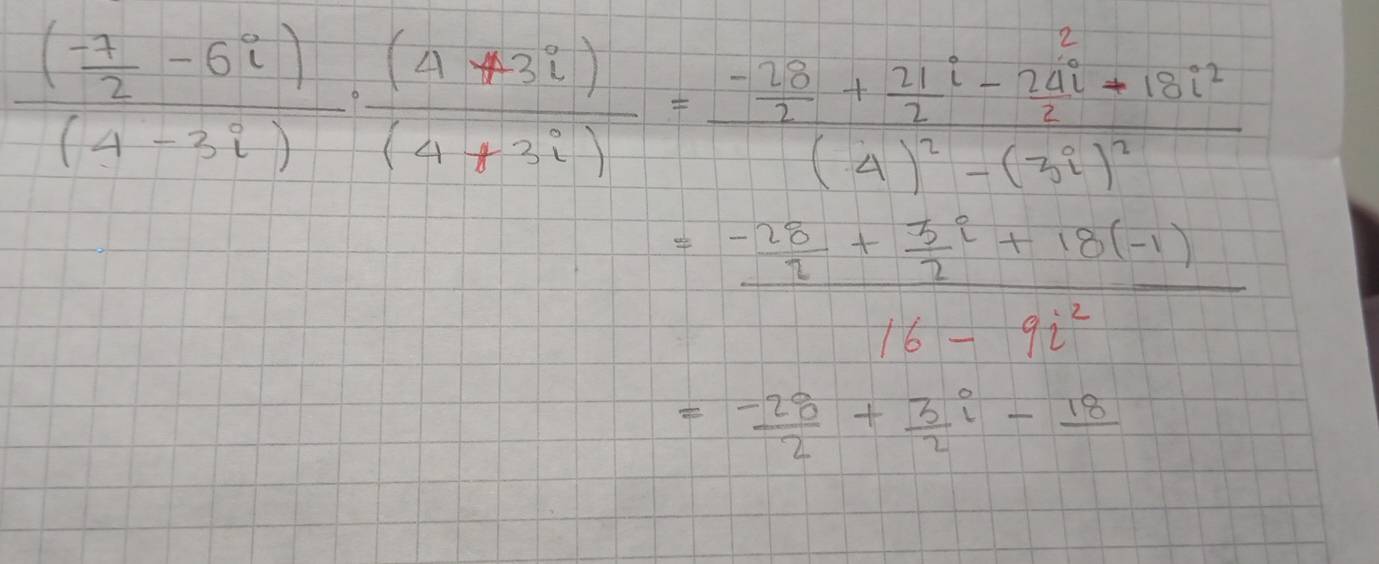 (-7/2 - 6i)/(4 - 3i) · (4 + 3i)/(4 + 3i) = (-28/2 + 21/2 i - 2 24i/2 - 18i²)/((4)² - (3i)²)
= (-28/2 + 3/2 i + 18(-1))/(16 - 9i²)
= -28/2 + 3/2 i - 18/